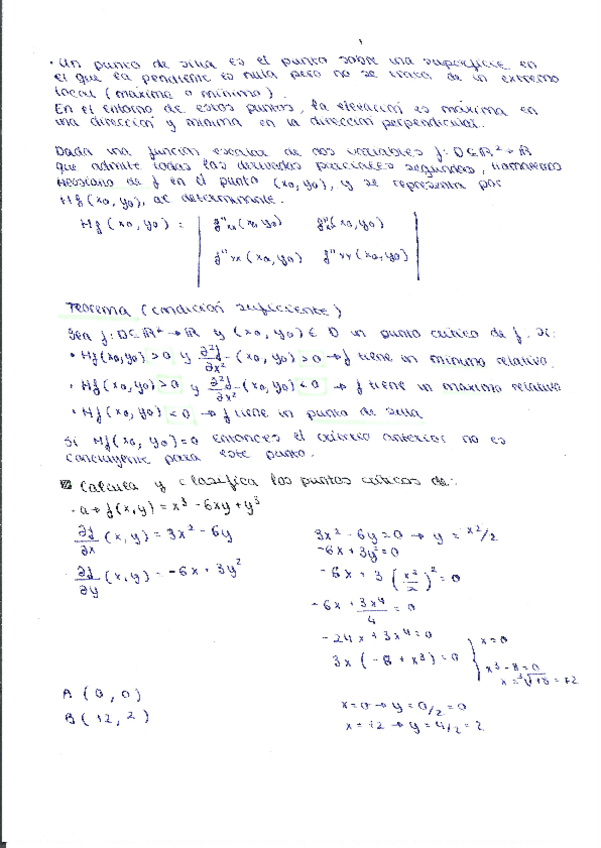 · Un punto de silla es el punto sobre una superficie en
el que la pendiente es nula pero no se trata de un extremo
local (máximo o mínimo).
En el entorno de estos puntos, la elevación es máxima en
una dirección y mínima en la dirección perpendicular.
Dada una función escalar de dos variables f: D⊆ℝ²→ℝ
que admite todas las derivadas parciales segundas, llamamos
Hessiano de f en el punto (x0, y0), y se representa por
Hf(x0, y0), al determinante.
Hf(x0, y0) = | f''xx(x0, y0) f''xy(x0, y0) |
| f''yx(x0, y0) f''yy(x0, y0) |
Teorema (condición suficiente)
Sea f: D⊆ℝ²→ℝ y (x0, y0) ∈ D un punto crítico de f. Si:
• Hf(x0, y0) > 0 y ∂²f/∂x² (x0, y0) > 0 → f tiene un mínimo relativo.
• Hf(x0, y0) > 0 y ∂²f/∂x² (x0, y0) < 0 → f tiene un máximo relativo
• Hf(x0, y0) < 0 → f tiene un punto de silla
Si Hf(x0, y0) = 0 entonces el criterio anterior no es
concluyente para este punto.
Calcula y clasifica los puntos críticos de:
· a → f(x, y) = x³ - 6xy + y³
∂f/∂x (x, y) = 3x² - 6y
∂f/∂y (x, y) = -6x + 3y²
3x² - 6y = 0 → y = x²/2
-6x + 3y² = 0
-6x + 3 (x²/2)² = 0
-6x + 3x⁴/4 = 0
-24x + 3x⁴ = 0
3x (-8 + x³) = 0 } x = 0
x³ - 8 = 0
x = ³√+8 = +2
A (0, 0)
B (+2, 2)
x = 0 → y = 0/2 = 0
x = +2 → y = 4/2 = 2